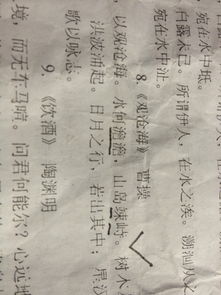 宛在水中坻。
白露未已。所谓伊人，在水之涘。溯洄从之
宛在水中沚。
8.《观沧海》 曹操
以观沧海。水何澹澹，山岛竦峙。树木
洪波涌起。日月之行，若出其中；星汉
歌以咏志。
9.《饮酒》 陶渊明
境，而无车马喧。问君何能尔？心远地